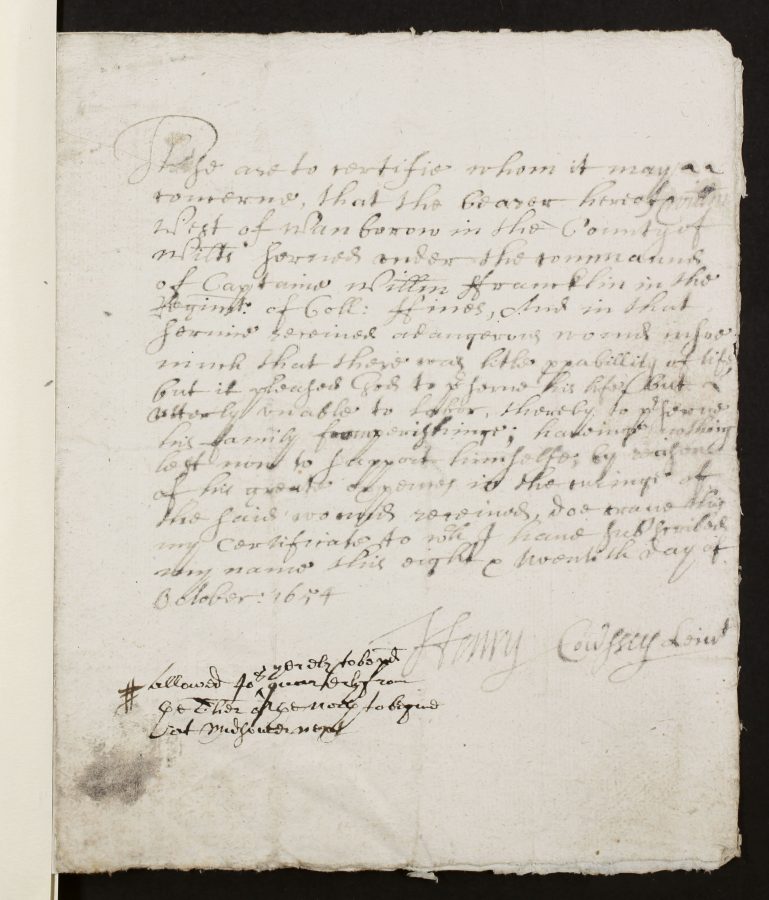 These are to certifie whom it may
concerne, that the bearer hereof
West of Wanborow in the County of
Wilts served under the command
of Captaine Willm ffrancklin in the
Regimt: of Coll: ffines, And in that
servis received a dangerous wound insoe
much that there was litle pbabillity of life
but it pleased God to pserve his life, but
utterly unable to labor, thereby to pserve
his family from perishinge; haveinge nothing
left now to support himselfe, by reason
of his greate expences in the cureinge of
the said wound received, doe crave this
my Certificate to wch I have subscribed
my name this eight & twentith day of
October: 1654
Henry Leiut
allowed 40s yerely to be pd
quarterly from
the to begine
at Midsomer next